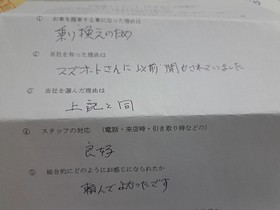 ① お車を廃車する事になった理由は
乗り換えのため
② 当社を知った理由は
スズオートさんに以前聞かされていました
③ 当社を選んだ理由は
上記と同
④ スタッフの対応 (電話・来店時・引き取り時などの)
良好
⑤ 総合的にどのようにお感じになられたか
頼んでよかったです